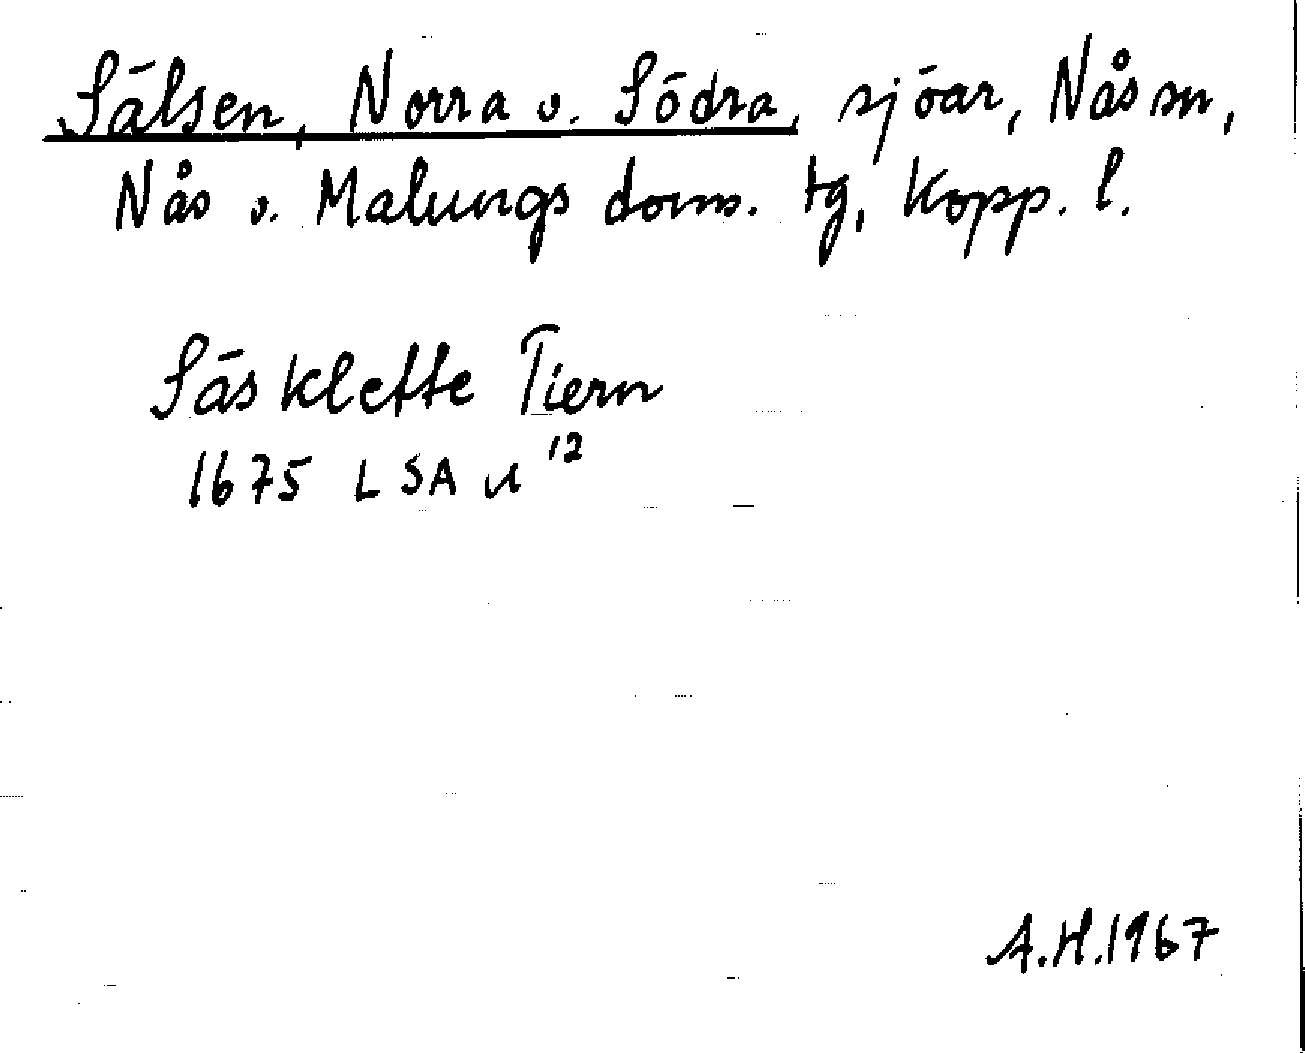 Sälsen, Norra o. Södra, sjöar, Nås sn,
Nås o. Malungs doms. tg, Kopp. l.
Säs klette Tiern
1675 LSA u 12
A.H. 1967